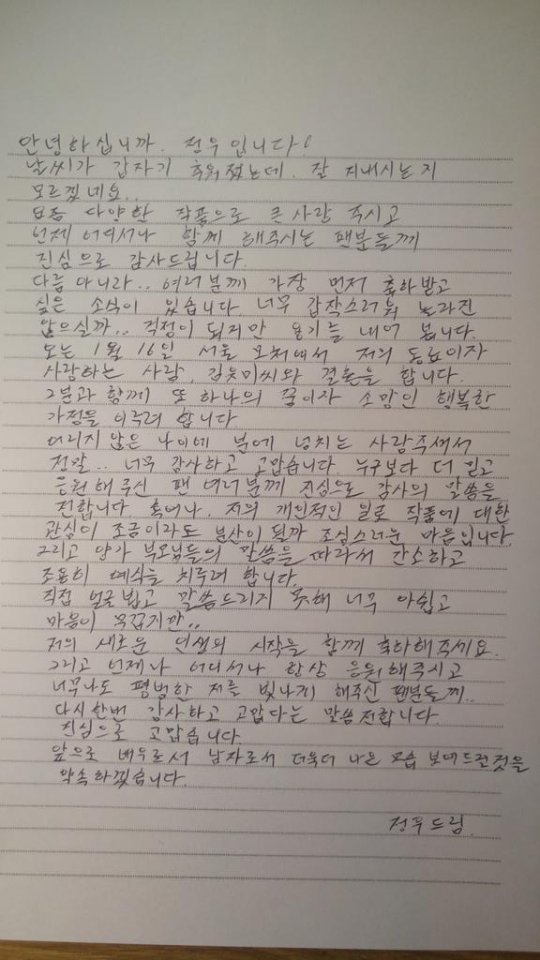 안녕하십니까. 정우입니다!
날씨가 갑자기 추워졌는데. 잘 지내시는지
모르겠네요..
요즘 다양한 작품으로 큰사랑 주시고
언제 어디서나 함께 해주시는 팬분들께
진심으로 감사드립니다.
다름 아니라.. 여러분께 가장 먼저 축하받고
싶은 소식이 있습니다. 너무 갑작스러워 놀라진
않으실까.. 걱정이 되지만 용기를 내어 봅니다.
오는 1월 16일 서울 모처에서 저의 동료이자
사랑하는 사람, 김유미씨와 결혼을 합니다.
그분과 함께 또 하나의 꿈이자 소망인 행복한
가정을 이루려 합니다
어리지 않은 나이에 분에 넘치는 사랑주셔서
정말.. 너무 감사하고 고맙습니다. 누구보다 더 믿고
응원해 주신 팬 여러분께 진심으로 감사의 말씀을
전합니다. 혹여나. 저의 개인적인 일로 작품에 대한
관심이 조금이라도 분산이 될까 조심스러운 마음입니다.
그리고 양가 부모님들의 말씀을 따라서 간소하고
조용히 예식을 치루려 합니다.
직접 얼굴뵙고 말씀드리지 못해 너무 아쉽고
마음이 무겁지만..
저의 새로운 인생의 시작을 함께 축하해주세요.
그리고 언제나 어디서나 항상 응원해주시고
너무나도 평범한 저를 빛나게 해주신 팬분들께..
다시한번 감사하고 고맙다는 말씀전합니다.
진심으로 고맙습니다.
앞으로 배우로서 남자로서 더욱더 나은 모습 보여드릴것을
약속하겠습니다.
정우드림.